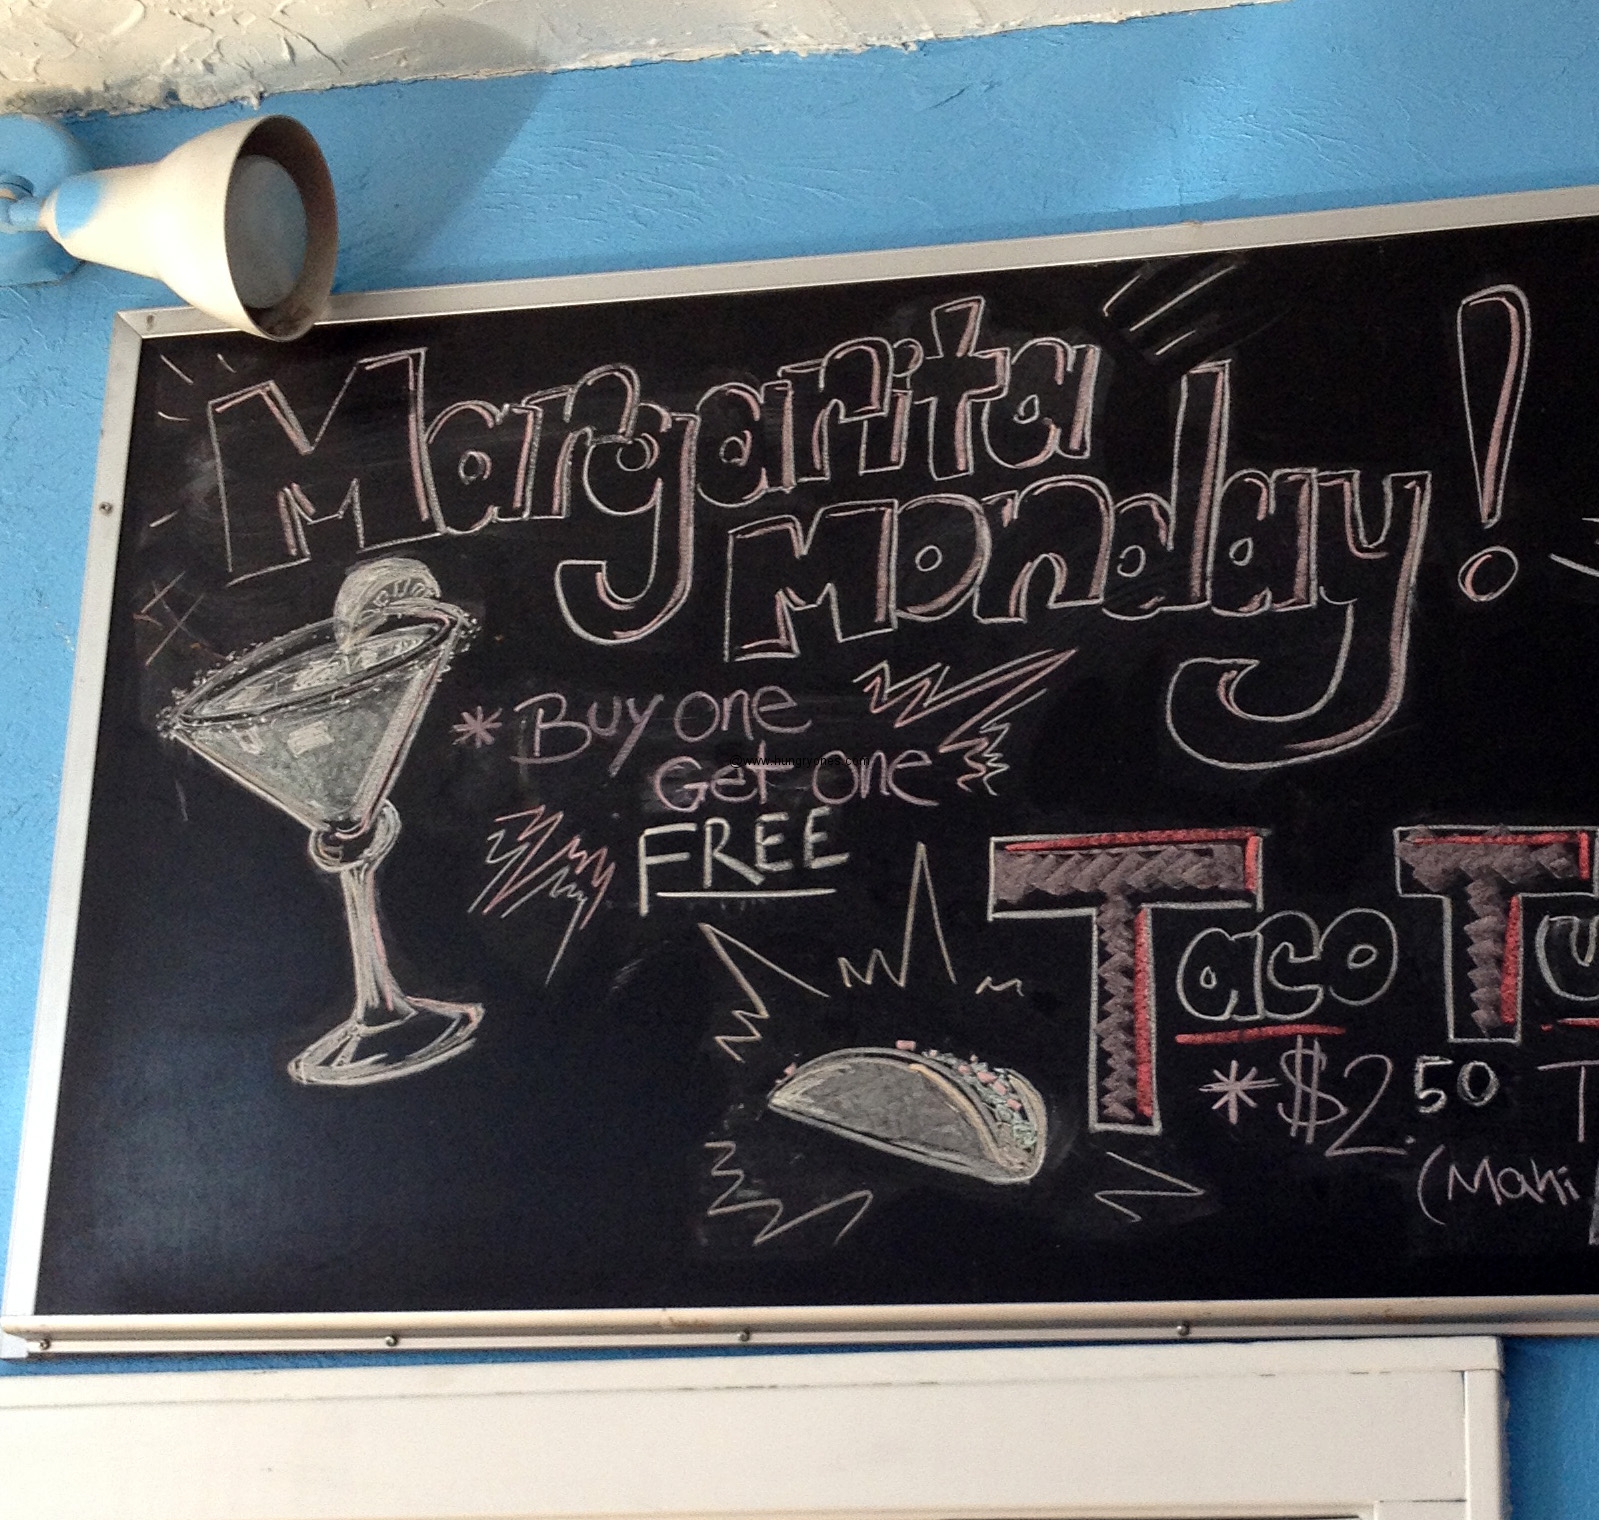 Margarita
Monday!
* Buy one
Get one
FREE
© www.hungryones.com
Taco Tu
* $2.50 T
(Mahi